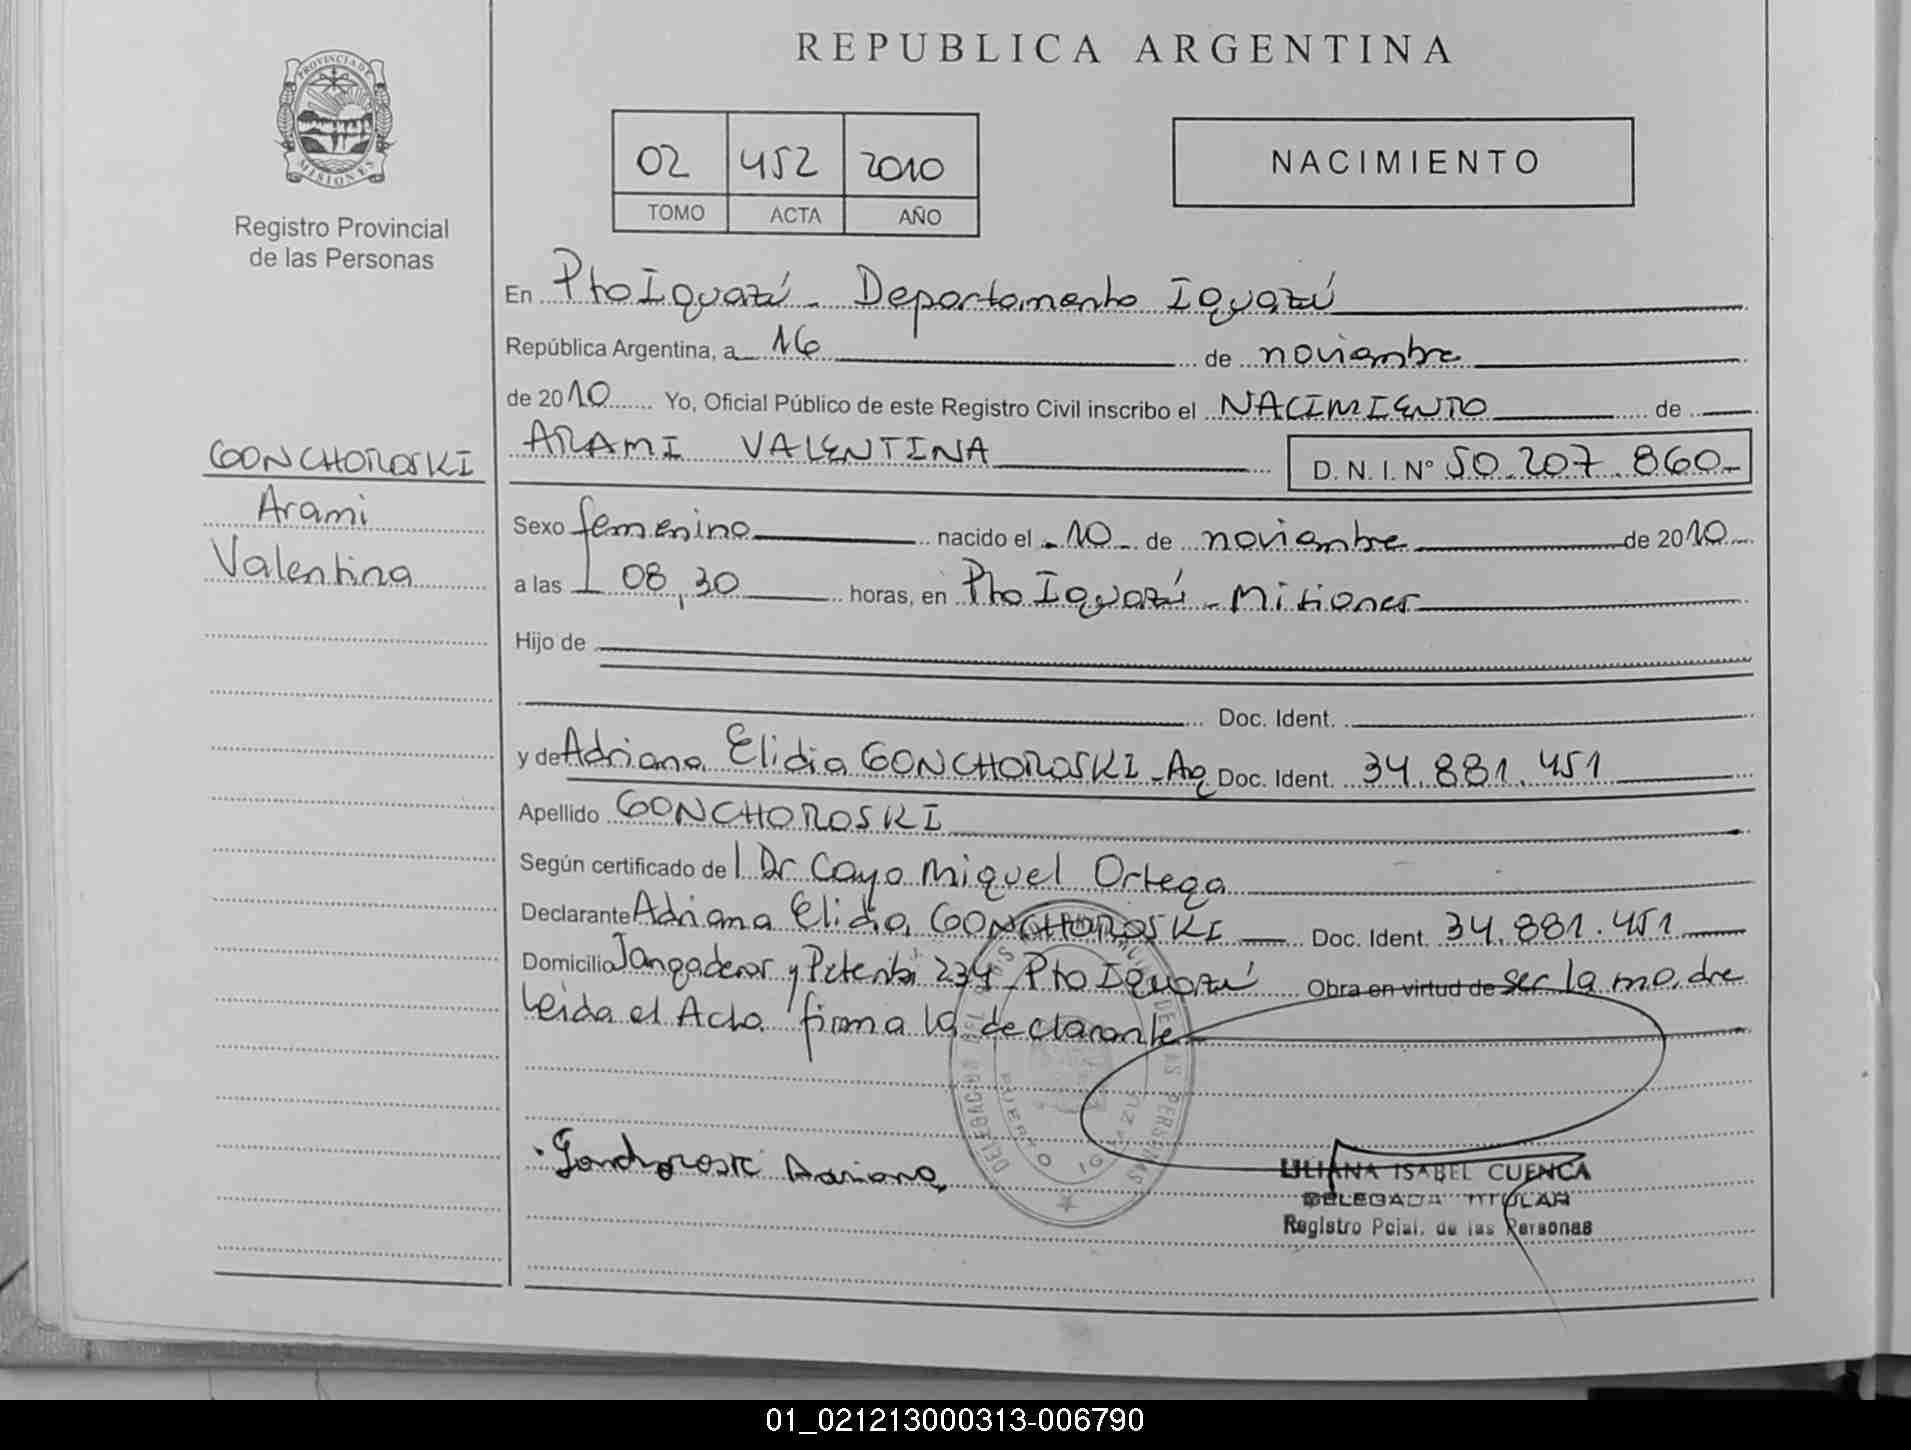 REPUBLICA ARGENTINA
PROVINCIA DE
MISIONES
Registro Provincial
de las Personas
02 452 2010
TOMO ACTA AÑO
NACIMIENTO
En Pto Iguazú - Departamento Iguazú
República Argentina, a 16 de noviembre
de 2010 Yo, Oficial Público de este Registro Civil inscribo el NACIMIENTO de
ARAMI VALENTINA D.N.I. N° 50.207.860-
GONCHOROSKI
Arami
Valentina
Sexo femenino nacido el -10- de noviembre de 2010
a las 08,30 horas, en Pto Iguazú - Misiones
Hijo de
Doc. Ident.
y de Adriana Elidia GONCHOROSKI - Ag Doc. Ident. 34.881.451
Apellido GONCHOROSKI
Según certificado de l Dr Cayo Miguel Ortega
Declarante Adriana Elidia GONCHOROSKI Doc. Ident. 34.881.451
Domicilio Jangaderos y 234 Pto Iguazú Obra en virtud de ser la madre
Leida el Acta firma la declarante
DELEGACION DEL DE LAS PERSONAS
PUERTO IGUAZU
Gonchoroski Adriana
LILIANA ISABEL CUENCA
DELEGADA TITULAR
Registro Pcial. de las Personas
01_021213000313-006790